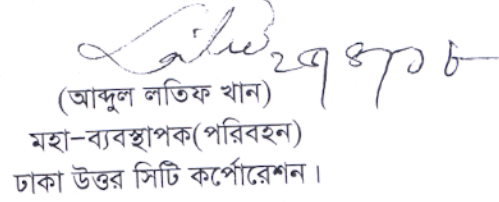 (আব্দুল লতিফ খান)
মহা-ব্যবস্থাপক(পরিবহন)
ঢাকা উত্তর সিটি কর্পোরেশন।